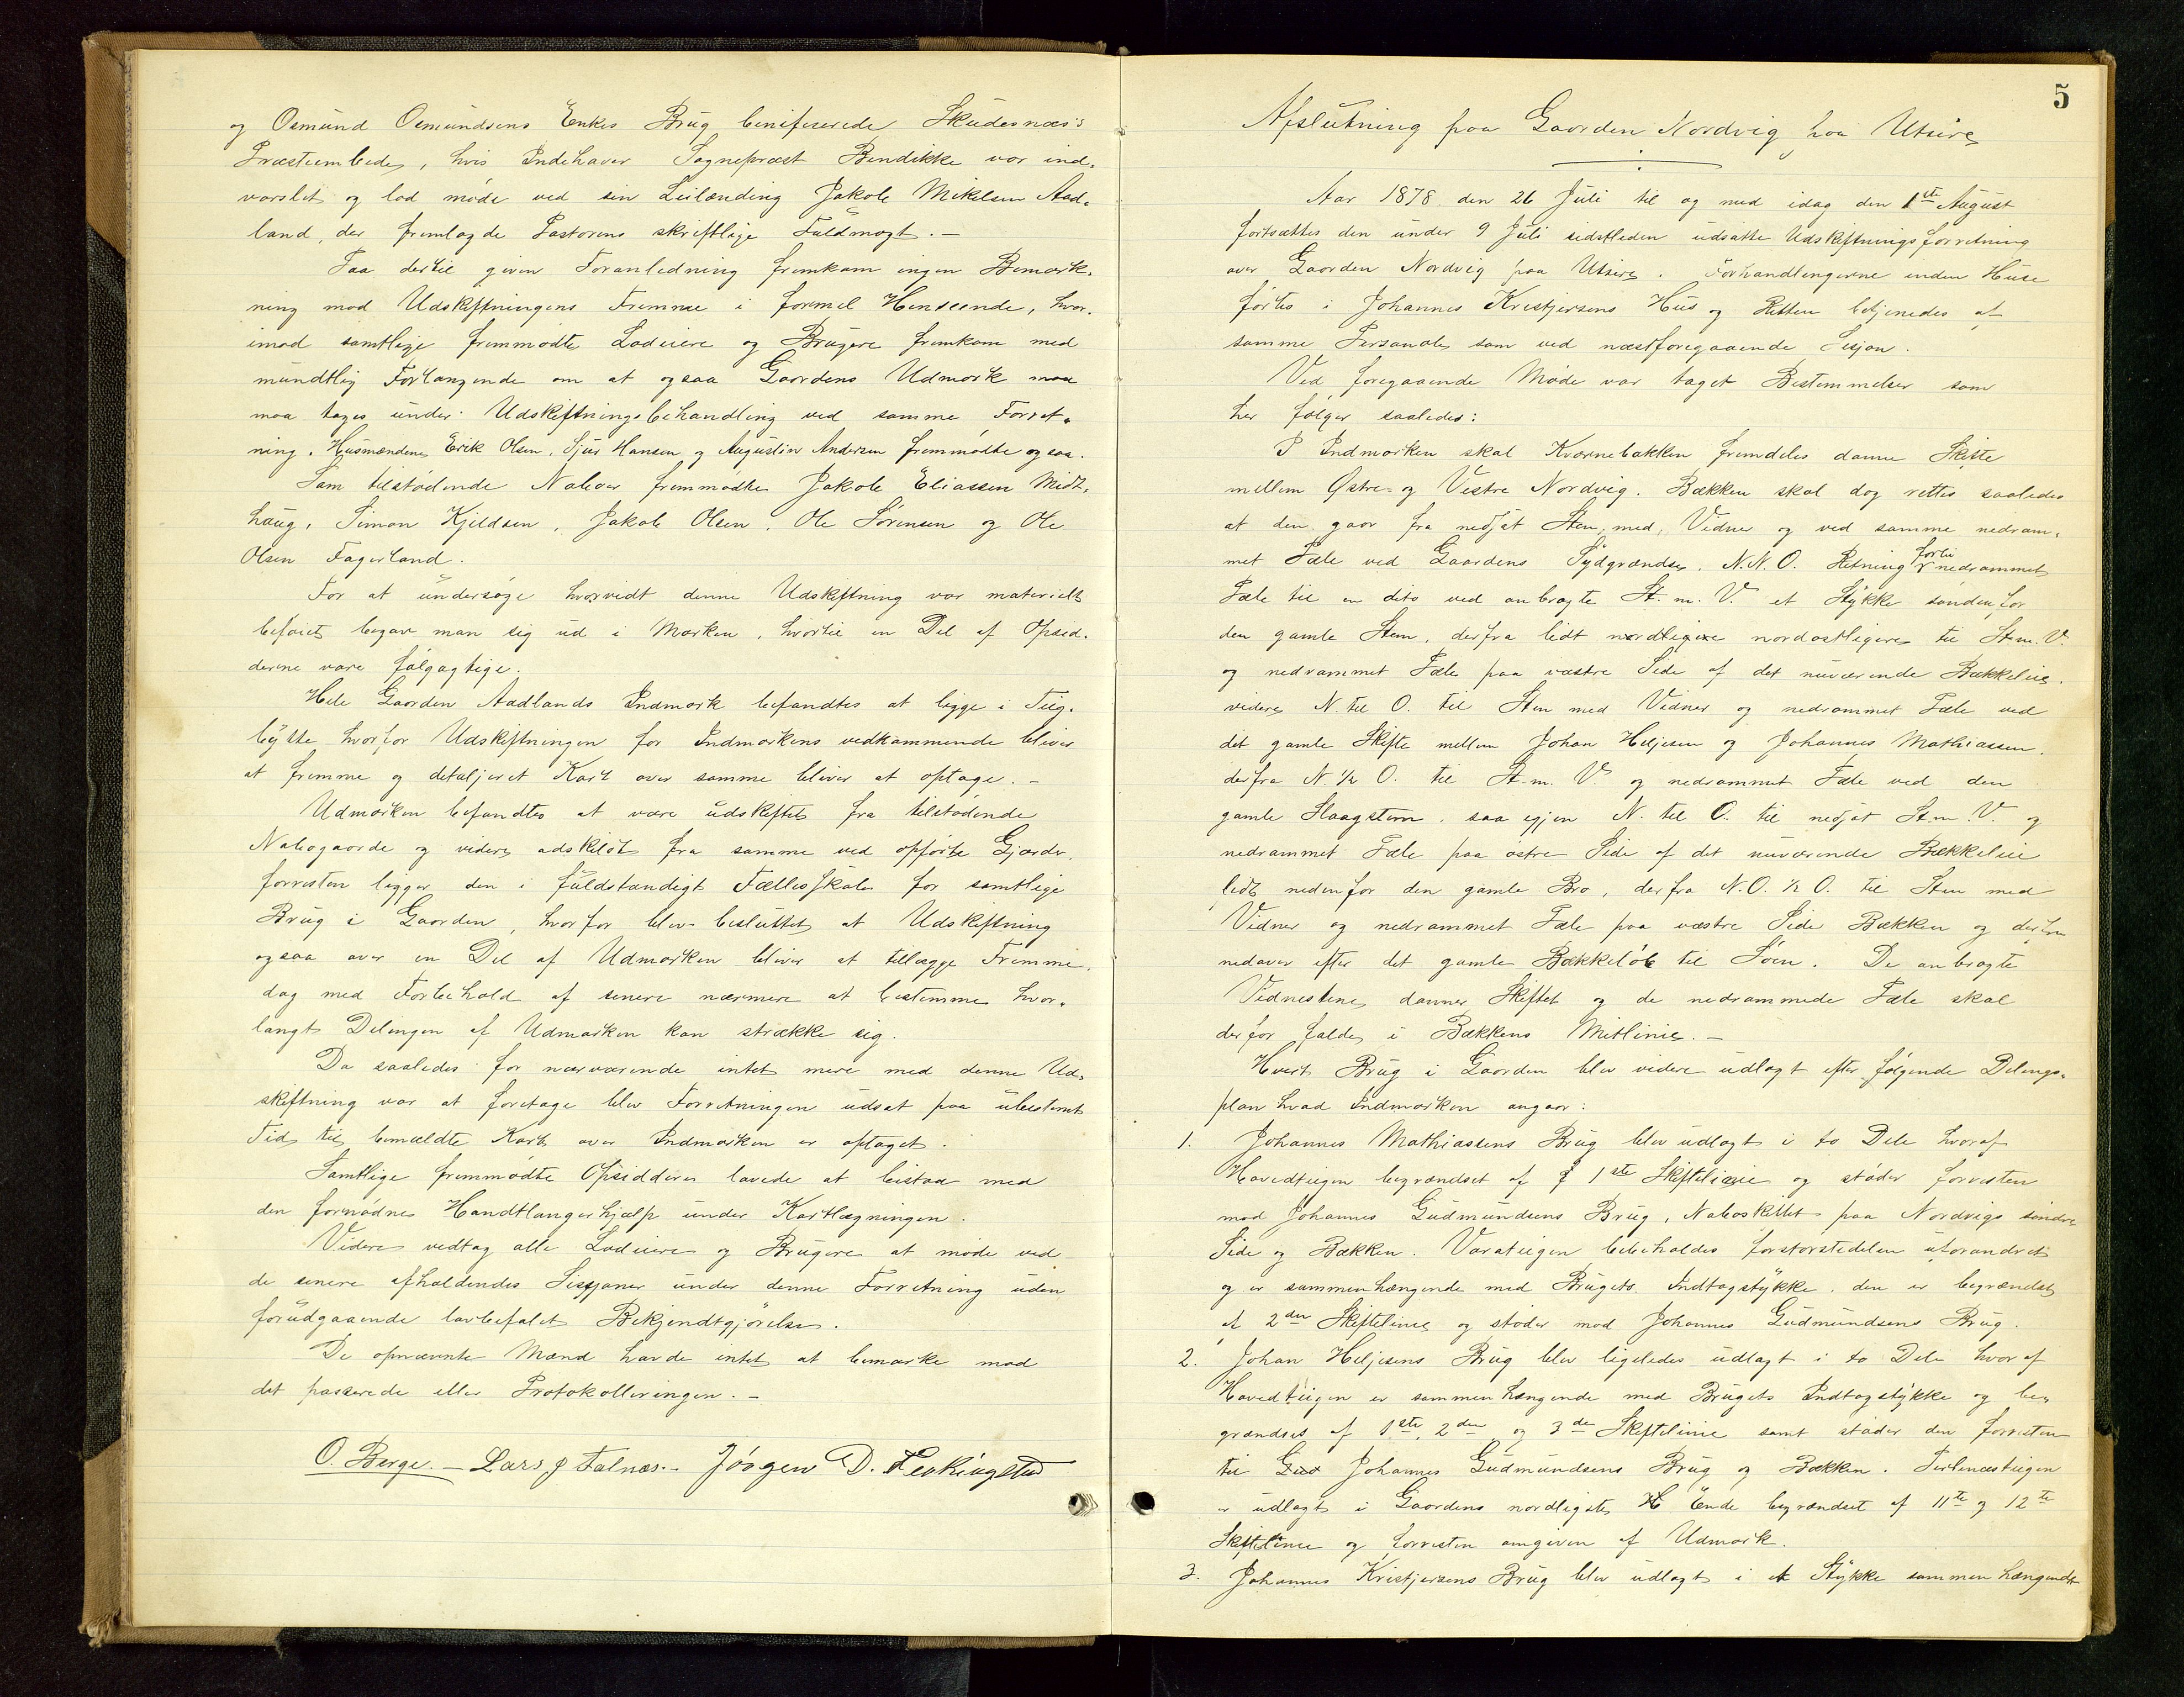 og Osmund Osmundsens Enkes Brug benifiserede Skudesnæs's
Præsteembede, hvis Indehaver Sognepræst Bendikke var ind-
varslet og lod møde ved sin Leilænding Jakob Mikelsen Aad-
land, der fremlagde Pastorens skriftlige Fuldmagt. —
Paa dertil given Foranledning fremkom ingen Bemærk-
ning mod Udskiftningens Fremme i formel Henseende, hvor-
imod samtlige fremmødte Lodeiere og Brugere fremkom med
mundtlig Forlangende om at ogsaa Gaardens Udmark maa
maa tages under Udskiftningsbehandling ved samme Forret-
ning. Husmændene Erik Olsen, Sjur Hansen og Augustin Andersen fremmødte ogsaa.
Som tilstødende Naboer fremmødte Jakob Eliassen Midt-
haug, Simon Kjeldsen, Jakob Olsen, Ole Sørensen og Ole
Olsen Fagerland.
For at undersøge hvorvidt denne Udskiftning var materielt
beføiet begav man sig ud i Marken, hvortil en Del af Opsid-
derne vare følgagtige.
Hele Gaarden Aadlands Indmark befandtes at ligge i Teig-
bytte hvorfor Udskiftningen for Indmarkens vedkommende bliver
at fremme og detaljeret Kart over samme bliver at optage. —
Udmarken befandtes at være udskiftet fra tilstødende
Nabogaarde og videre adskildt fra samme ved opførte Gjærder,
forresten ligger den i fuldstændigt Fællesskab for samtlige
Brug i Gaarden, hvorfor blev besluttet at Udskiftning
ogsaa over en Del af Udmarken bliver at tillægge Fremme,
dog med Forbehold af senere nærmere at bestemme hvor-
langt Delingen af Udmarken kan strække sig.
Da saaledes for nærværende intet mere med denne Ud-
skiftning var at foretage blev Forretningen udsat paa ubestemt
Tid til bemældte Kart over Indmarken er optaget.
Samtlige fremmødte Opsiddere lovede at bistaa med
den fornødne Handtlangerhjælp under Kartlægningen.
Videre vedtog alle Lodeiere og Brugere at møde ved
de senere afholdendes Sessjoner under denne Forretning uden
forudgaaende lovbefalet Bekjendtgjørelse.
De opnævnte Mænd havde intet at bemærke mod
det passerede eller Protokolleringen. —
O. Berge. — Lars J Falnæs. — Jørgen D.
5
Afslutning paa Gaarden Nordvig paa Utsire
Aar 1878 den 26 Juli til og med idag den 1ste August
fortsættes den under 9 Juli sidstleden udsatte Udskiftningsforretning
over Gaarden Nordvig paa Utsire. Forhandlingerne inden Huse
førtes i Johannes Kristjersens Hus og Retten betjenedes af
samme Personale som ved næstforegaaende Sesjon.
Ved foregaaende Møde var taget Bestemmelser som
her følger saaledes:
I Indmarken skal Kværnebakken fremdeles danne Skifte
mellem Østre- og Vestre Nordvig. Bækken skal dog rettes saaledes
at den gaar fra nedsat Sten med Vidner og ved samme nedram-
met Pæle ved Gaardens Sydgrændse, N.N.O. Retning forbi nedrammet
Pæle til en dito ved anbragte St. m. V. et Stykke søndenfor
den gamle Stem, derfra lidt nordligere nordostligere til St. m. V.
og nedrammet Pæle paa væstre Side af det nuværende Bækkeleie.
videre N. til O. til Sten med Vidner og nedrammet Pæle ved
det gamle Skifte mellem Johan Heljesen og Johannes Mathiassen.
derfra N. ½ O. til St. m. V. og nedrammet Pæle ved den
gamle Slaagstem, saa igjen N. til O. til nedsat St. m. V. og
nedrammet Pæle paa østre Side af det nuværende Bækkeleie
lidt nedenfor den gamle Bro, derfra N.O. ½ O. til Sten med
Vidner og nedrammet Pæle paa væstre Side Bækken og derfra
nedover efter det gamle Bækkeløb til Søen. De anbragte
Vidnestene danner Skiftet og de nedrammede Pæle skal
derfor falde i Bækkens Mitlinie. —
Hvert Brug i Gaarden blev videre udlagt efter følgende Delings-
plan hvad Indmarken angaar:
1. Johannes Mathiassens Brug blev udlagt i to Dele hvoraf
Hovedteigen begrændset af 1ste Skiftelinie og støder forresten
mod Johannes Gudmundsens Brug, Naboskiftet paa Nordvigs søndre
Side og Bækken. Varateigen bebeholdes forstørstedelen uforandret
og er sammenhængende med Brugets Indtagstykke. den er begrændset
af 2den Skiftelinie og støder mod Johannes Gudmundsens Brug.
2. Johan Heljesens Brug blev ligeledes udlagt i to Dele hvoraf
Hovedteigen er sammenhængende med Brugets Indtagstykke og be-
grændses af 1ste, 2den og 3de Skiftelinie samt støder den forresten
til Gud Johannes Gudmundsens Brug og Bækken. Perlenesteigen
er udlagt i Gaardens nordligste Ende begrændset af 11te og 12te
Skiftelinie og forresten omgiven af Udmark.
3. Johannes Kristjersens Brug blev udlagt i et Stykke sammenhængende